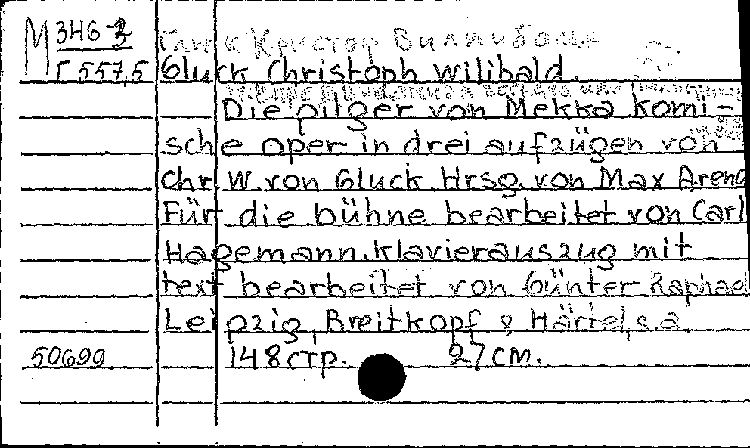 М 346-3
Глюк Кристоф Виллибальд
Г 557,5 Gluck Christoph Wilibald.
Die pilger von Mekka komi-
sche oper in drei aufzügen von
Chr. W. von Gluck. Hrsg. von Max Arend
Für die bühne bearbeitet von Carl
Hagemann. Klavierauszug mit
text bearbeitet von Günter Raphael
Leipzig, Breitkopf & Härtel, s.a.
50690 148 стр. 27 см.